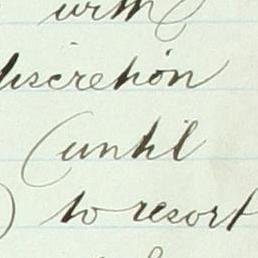 with
discretion
(until
) to resort